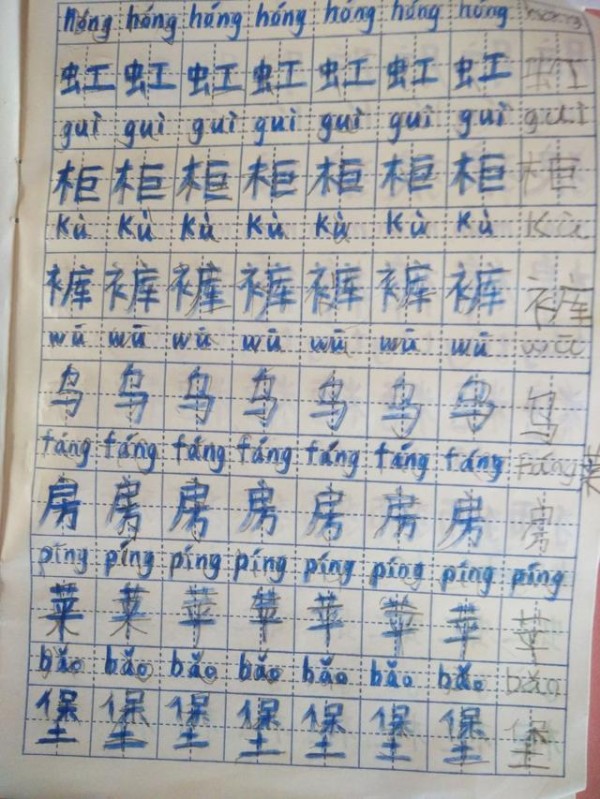 hóng hóng hóng hóng hóng hóng hóng
虹 虹 虹 虹 虹 虹 虹 虹
guì guì guì guì guì guì guì gui
柜 柜 柜 柜 柜 柜 柜 柜
Kù Kù Kù Kù Kù Kù Kù Kù
裤 裤 裤 裤 裤 裤 裤 裤
wū wū wū wū wū wū wū wū
乌 乌 乌 乌 乌 乌 乌 乌
fáng fáng fáng fáng fáng fáng fáng fáng
房 房 房 房 房 房 房 房
píng píng píng píng píng píng píng píng
菜 菜 苹 苹 苹 苹 苹 苹
bǎo bǎo bǎo bǎo bǎo bǎo bǎo bǎo
堡 堡 堡 堡 堡 堡 堡 堡